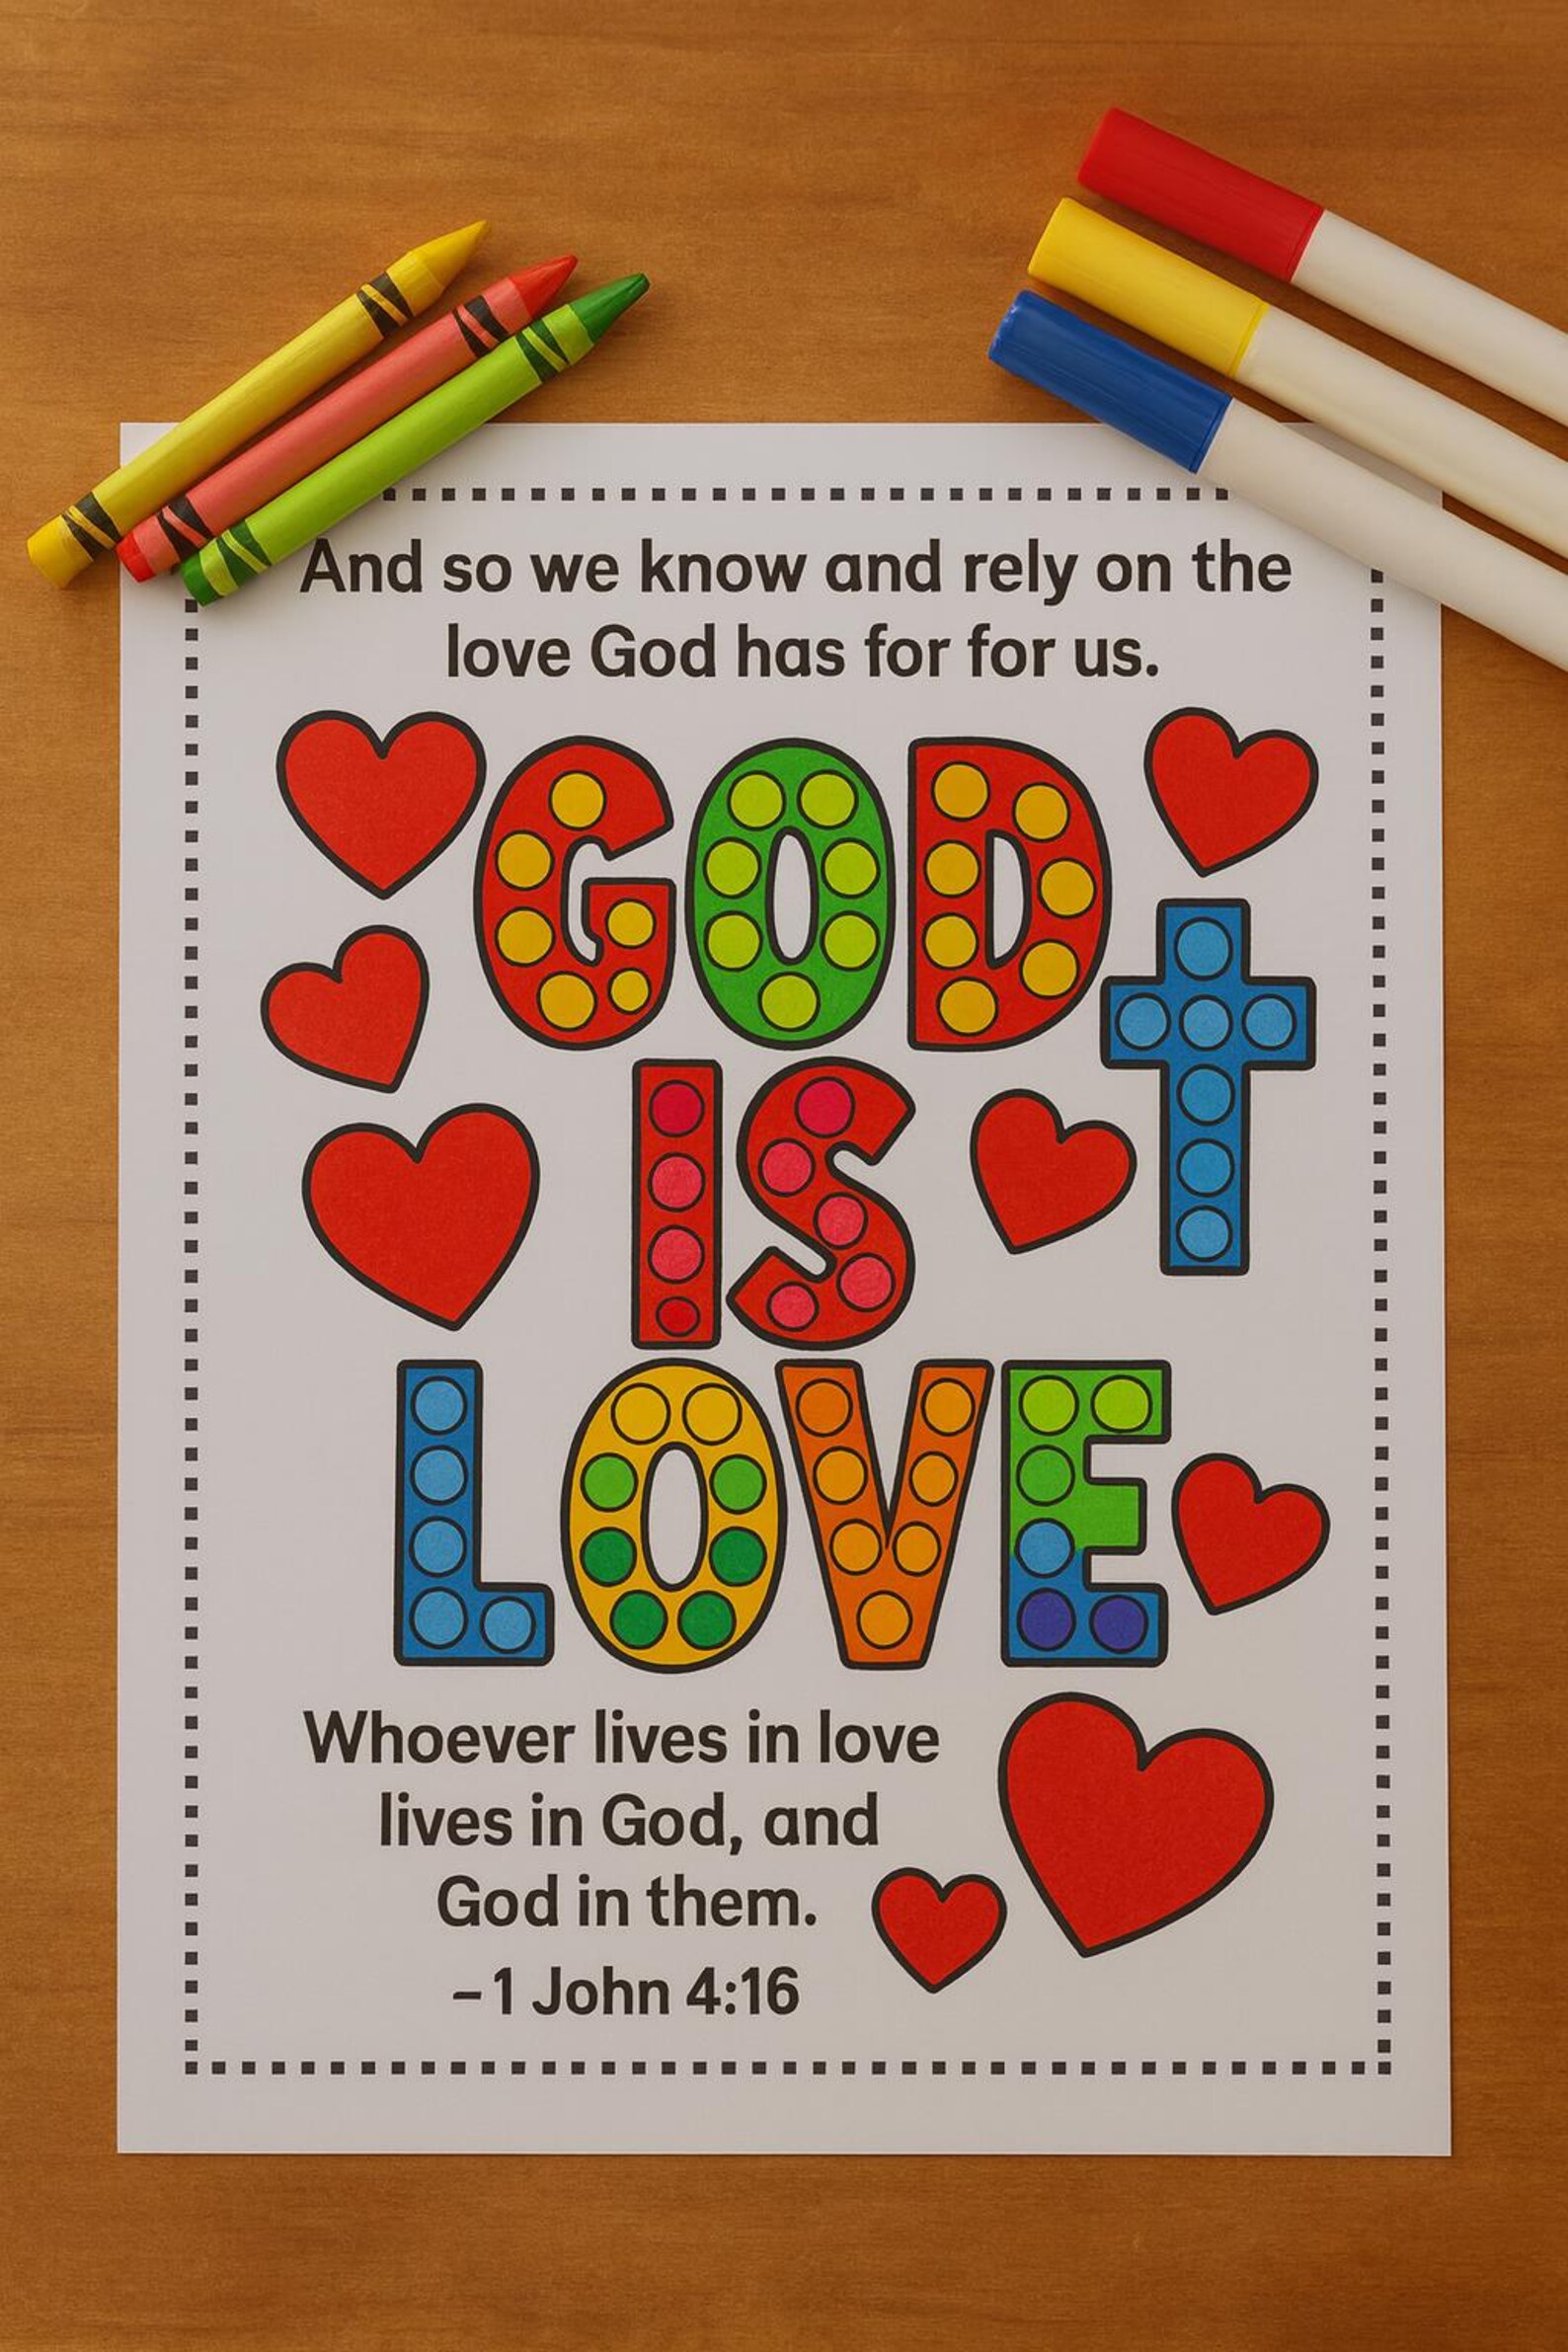 And so we know and rely on the
love God has for for us.
GOD
IS
LOVE
Whoever lives in love
lives in God, and
God in them.
–1 John 4:16